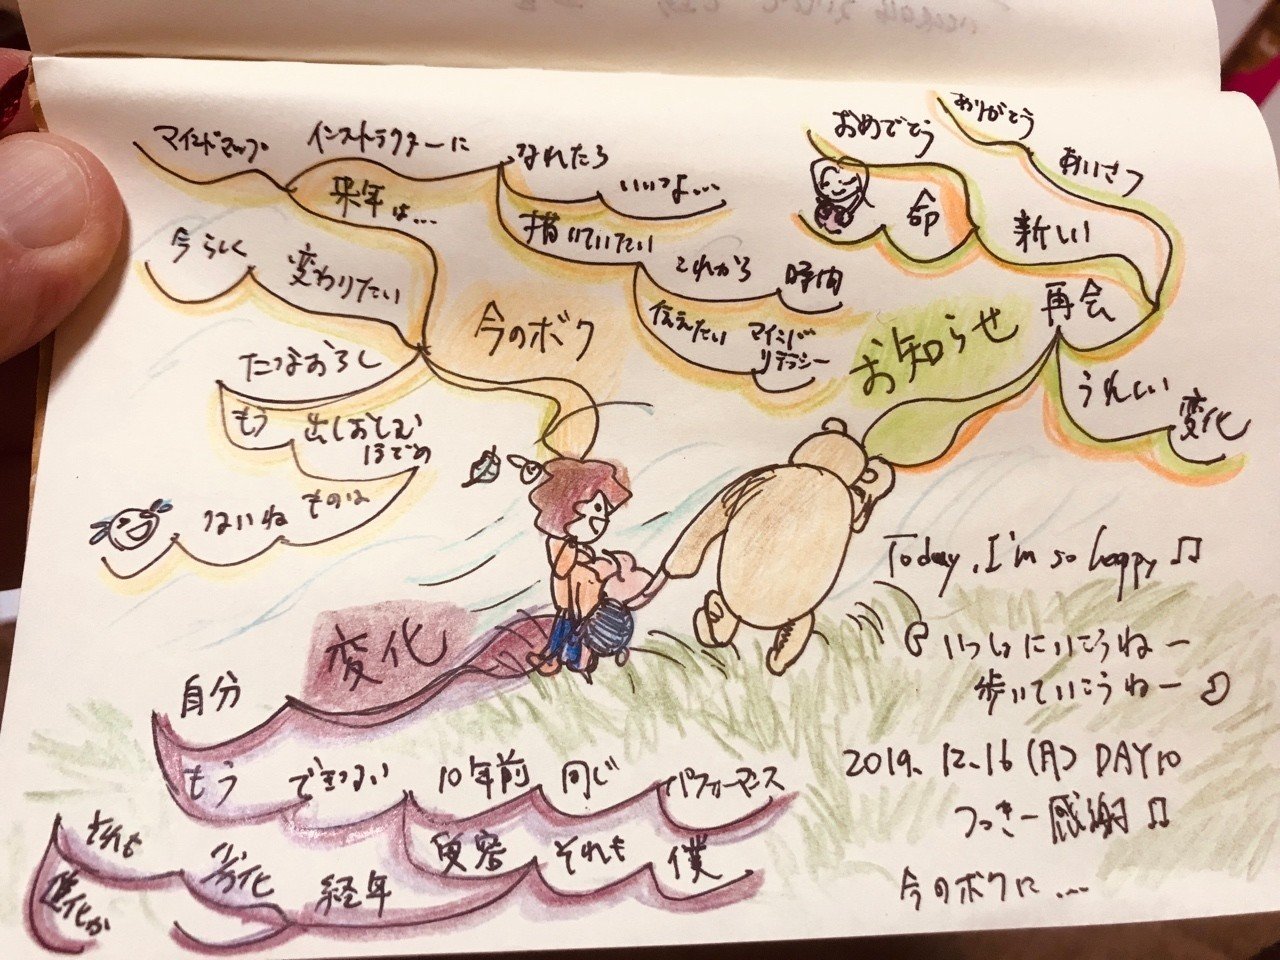 マインドマップ
インストラクターに
なれたら
いいな…
来年は…
描いていたい
これから
時間
伝えたい
マインド
リテラシー
今らしく
変わりたい
今のボク
たなおろし
もう
出しおしむ
ほどの
ものは
ないね
ありがとう
あいさつ
おめでとう
命
新しい
再会
お知らせ
うれしい
変化
Today, I'm so happy♫
いっしょにいこうねー
歩いていこうねー
2019.12.16(月) DAY10
つっきー感謝♫
今のボクに…
変化
自分
もう
できない
10年前
同じ
パフォーマンス
受容
それも
僕
経年
劣化
それも
進化か